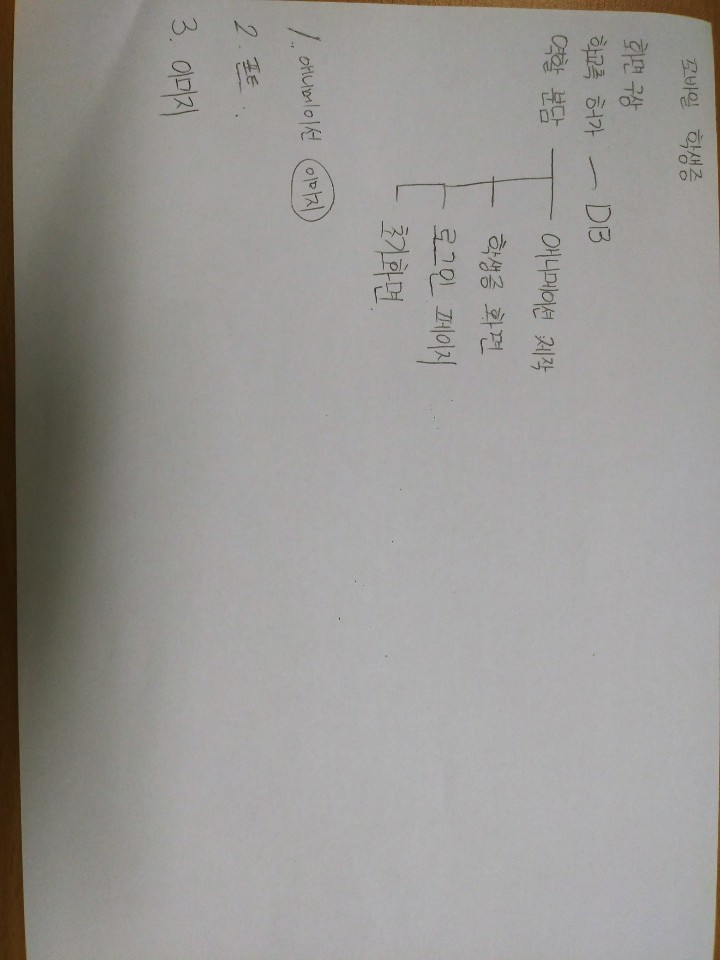 모바일 학생증
화면 구상
학교측 허가 — DB
역할 분담 — 애니메이션 제작
학생증 화면
로그인 페이지
초기화면
1. 애니메이션 이미지
2. 폰트
3. 이미지